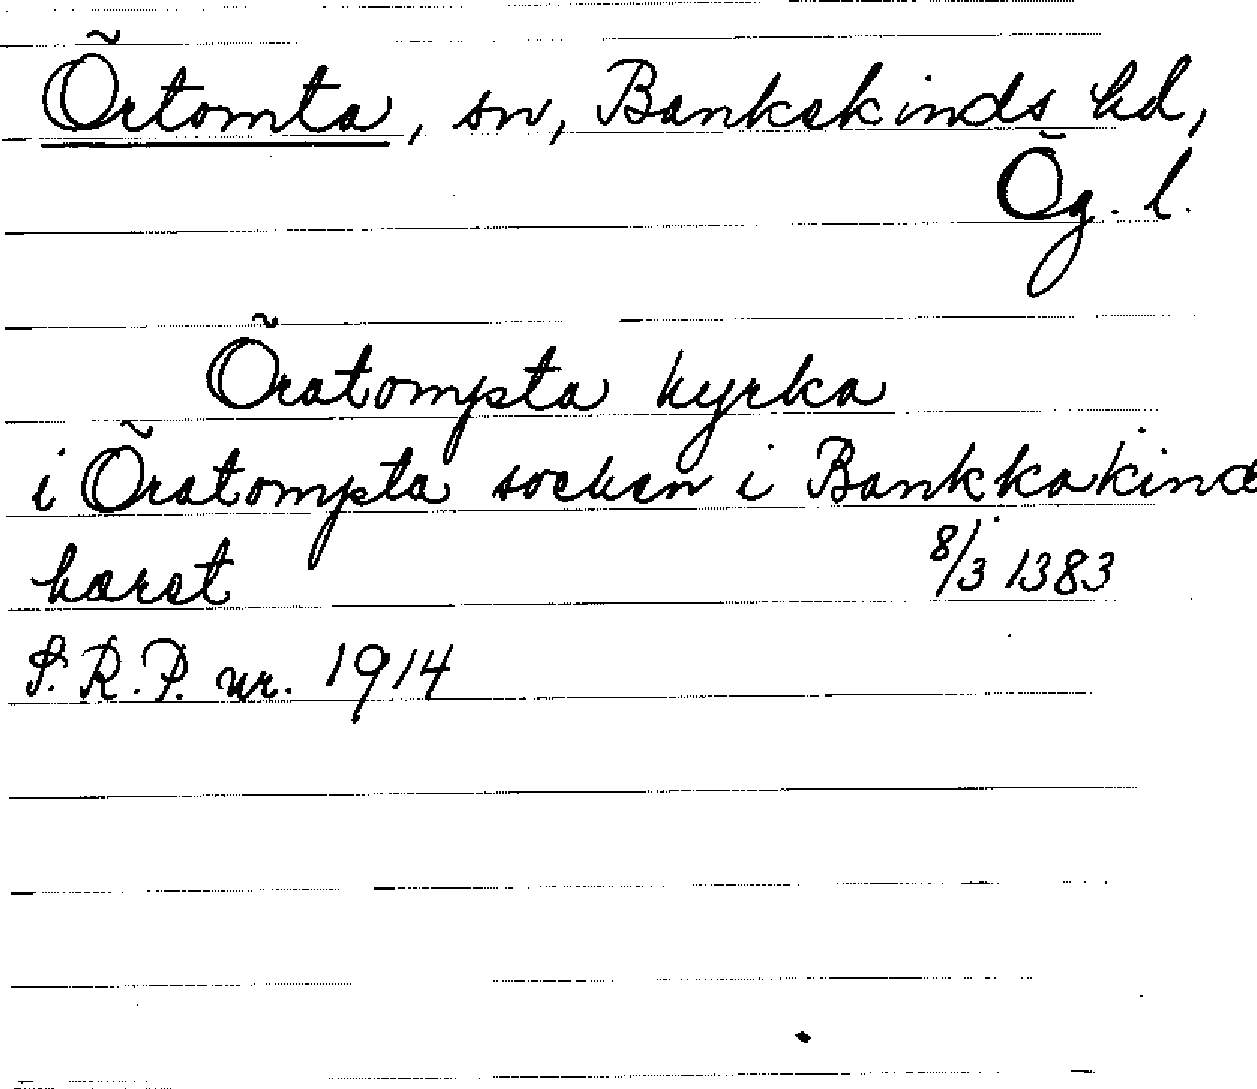 Örtomta, sn, Bankekinds hd,
Ög. l.
Öratompta kyrka
i Öratompta socken i Bankkakind
hæret
8/3 1383
S.R.P. nr. 1914